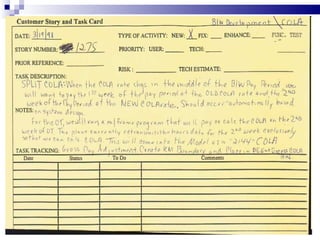 Customer Story and Task Card BIW Development COLA
DATE: 3/19/98 TYPE OF ACTIVITY: NEW: X FIX: ENHANCE: FUNC. TEST
STORY NUMBER: 1275 PRIORITY: USER: TECH:
PRIOR REFERENCE:
RISK: TECH ESTIMATE:
TASK DESCRIPTION:
SPLIT COLA: When the COLA rate chgs in the middle of the BIW Pay Period we
will want to pay the 1st week of the pay period at the OLD COLA rate and the 2nd
week of the Pay Period at the NEW COLA rate. Should occur automatically based
NOTES: on system design.
For the OT, we will run a m/frame program that will pay or calc the COLA on the 2nd
week of OT. The plant currently retransmits the hours data for the 2nd week exclusively
so that we can calc COLA. This will come into the Model as a "2144" COLA
TASK TRACKING: Gross Pay Adjustment. Create RM Boundary and Place in
Date Status To Do Comments